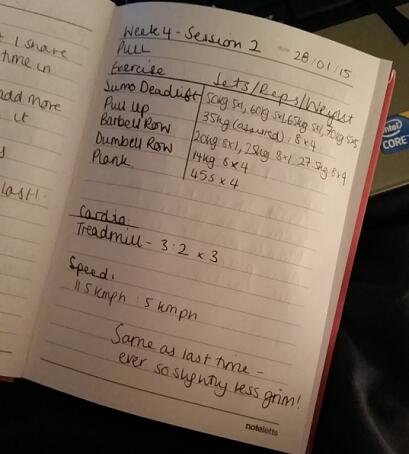 t I share
time in
add more
it
s
last!
Week 4 - Session 2
28/01/15
PULL
Exercise Sets/Reps/Weight
Sumo Deadlift 50kg 5x1, 60kg 5x1, 65kg 5x1, 70kg 5x5
Pull Up 35kg (assisted) : 8x4
Barbell Row 20kg 8x1, 25kg 8x1, 27.5kg 8x4
Dumbell Row 14kg 8x4
Plank 45s x 4
Cardio
Treadmill - 3:2 x 3
Speed:
11.5kmph : 5 kmph
Same as last time -
ever so slightly less grim!
noteletts
intel
CORE